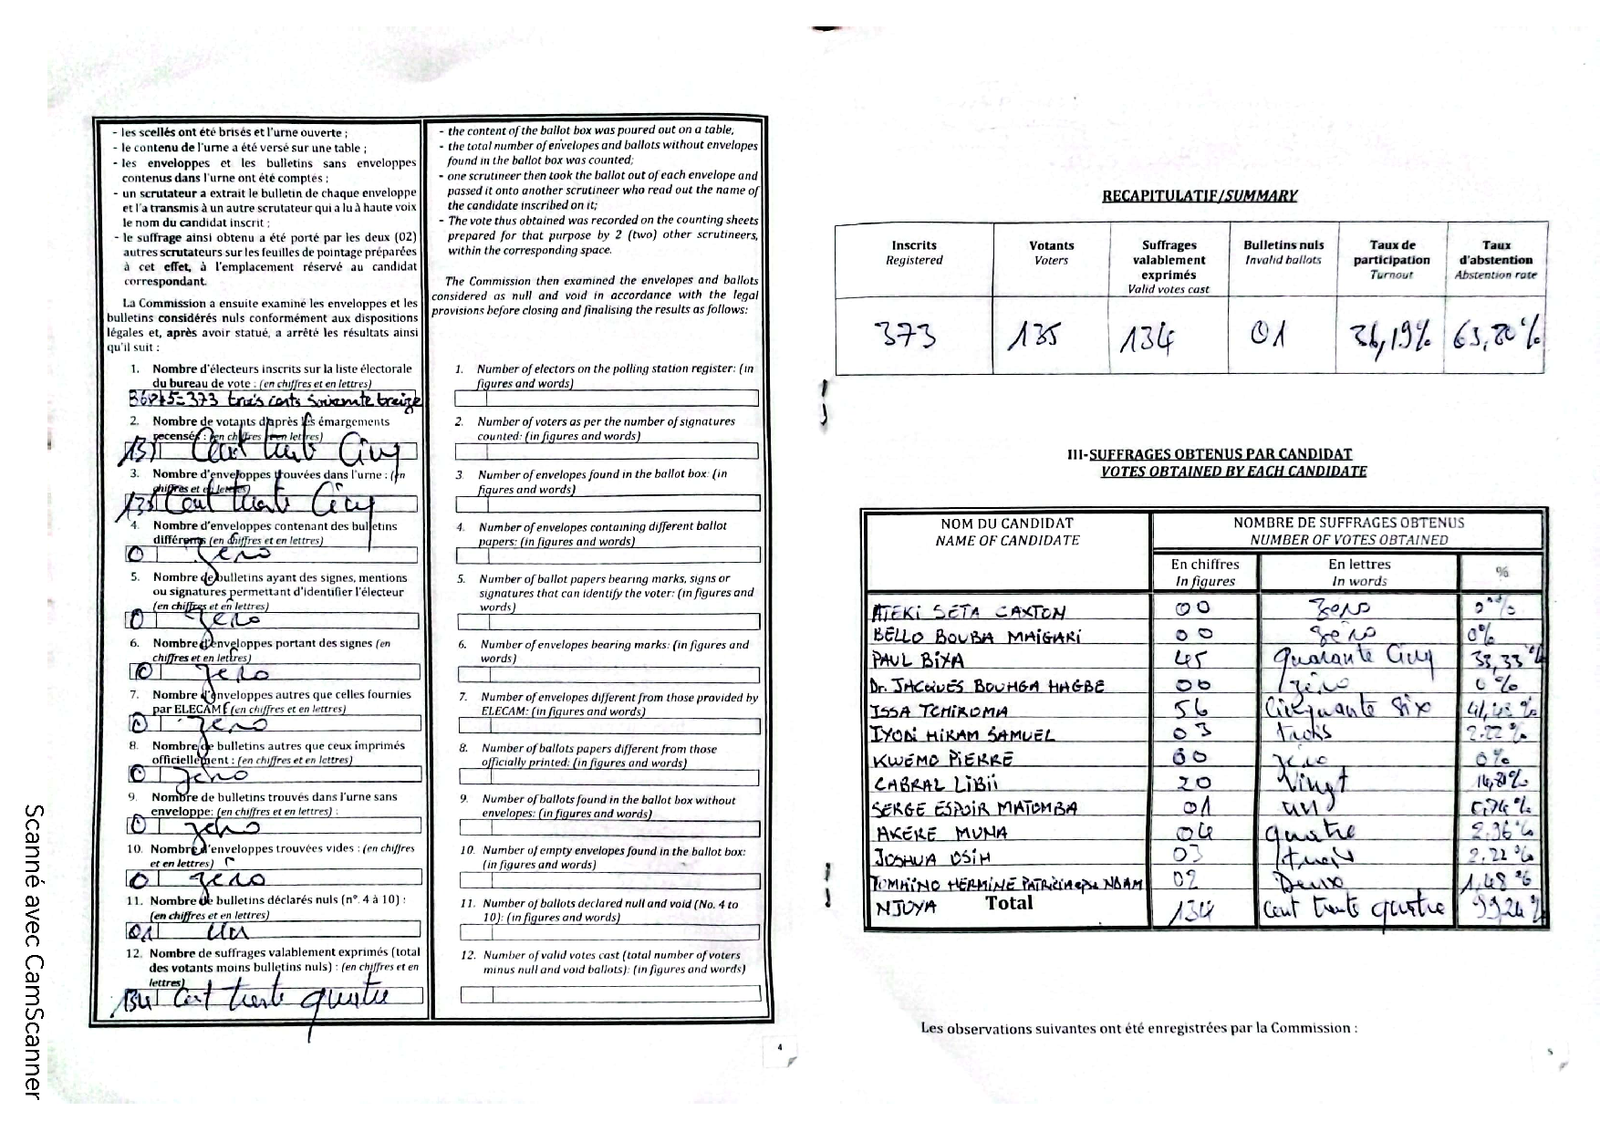 - les scellés ont été brisés et l'urne ouverte ;
- le contenu de l'urne a été versé sur une table ;
- les enveloppes et les bulletins sans enveloppes
contenus dans l'urne ont été comptés ;
- un scrutateur a extrait le bulletin de chaque enveloppe
et l'a transmis à un autre scrutateur qui a lu à haute voix
le nom du candidat inscrit ;
- le suffrage ainsi obtenu a été porté par les deux (02)
autres scrutateurs sur les feuilles de pointage préparées
à cet effet, à l'emplacement réservé au candidat
correspondant.
La Commission a ensuite examiné les enveloppes et les
bulletins considérés nuls conformément aux dispositions
légales et, après avoir statué, a arrêté les résultats ainsi
qu'il suit :
1. Nombre d'électeurs inscrits sur la liste électorale
du bureau de vote : (en chiffres et en lettres)
373 trois cents soixante treize
2. Nombre de votants d'après les émargements
recensés : (en chiffres et en lettres)
135 Cent trente Cinq
3. Nombre d'enveloppes trouvées dans l'urne : (en
chiffres et en lettres)
135 Cent trente Cinq
4. Nombre d'enveloppes contenant des bulletins
différents (en chiffres et en lettres)
0 zéro
5. Nombre de bulletins ayant des signes, mentions
ou signatures permettant d'identifier l'électeur
(en chiffres et en lettres)
0 zéro
6. Nombre d'enveloppes portant des signes (en
chiffres et en lettres)
0 zéro
7. Nombre d'enveloppes autres que celles fournies
par ELECAM (en chiffres et en lettres)
0 zéro
8. Nombre de bulletins autres que ceux imprimés
officiellement : (en chiffres et en lettres)
0 zéro
9. Nombre de bulletins trouvés dans l'urne sans
enveloppe: (en chiffres et en lettres) :
0 zéro
10. Nombre d'enveloppes trouvées vides : (en chiffres
et en lettres)
0 zéro
11. Nombre de bulletins déclarés nuls (n° 4 à 10) :
(en chiffres et en lettres)
01 un
12. Nombre de suffrages valablement exprimés (total
des votants moins bulletins nuls) : (en chiffres et en
lettres)
134 Cent trente quatre
- the content of the ballot box was poured out on a table,
- the total number of envelopes and ballots without envelopes
found in the ballot box was counted;
- one scrutineer then took the ballot out of each envelope and
passed it onto another scrutineer who read out the name of
the candidate inscribed on it;
- The vote thus obtained was recorded on the counting sheets
prepared for that purpose by 2 (two) other scrutineers,
within the corresponding space.
The Commission then examined the envelopes and ballots
considered as null and void in accordance with the legal
provisions before closing and finalising the results as follows:
1. Number of electors on the polling station register: (in
figures and words)
2. Number of voters as per the number of signatures
counted: (in figures and words)
3. Number of envelopes found in the ballot box: (in
figures and words)
4. Number of envelopes containing different ballot
papers: (in figures and words)
5. Number of ballot papers bearing marks, signs or
signatures that can identify the voter: (in figures and
words)
6. Number of envelopes bearing marks: (in figures and
words)
7. Number of envelopes different from those provided by
ELECAM: (in figures and words)
8. Number of ballots papers different from those
officially printed: (in figures and words)
9. Number of ballots found in the ballot box without
envelopes: (in figures and words)
10. Number of empty envelopes found in the ballot box:
(in figures and words)
11. Number of ballots declared null and void (No. 4 to
10): (in figures and words)
12. Number of valid votes cast (total number of voters
minus null and void ballots): (in figures and words)
4
Scanné avec CamScanner
RECAPITULATIF/SUMMARY
Inscrits Votants Suffrages Bulletins nuls Taux de Taux
Registered Voters valablement Invalid ballots participation d'abstention
exprimés Turnout Abstention rate
Valid votes cast
373 135 134 01 36,19% 63,80%
III-SUFFRAGES OBTENUS PAR CANDIDAT
VOTES OBTAINED BY EACH CANDIDATE
NOM DU CANDIDAT NOMBRE DE SUFFRAGES OBTENUS
NAME OF CANDIDATE NUMBER OF VOTES OBTAINED
En chiffres En lettres %
In figures In words
ATEKI SETA CAXTON 00 Zéro 0%
BELLO BOUBA MAIGARI 00 zéro 0%
PAUL BIYA 45 quarante Cinq 33,33%
Dr. JACQUES BOUHGA HAGBE 00 zéro 0%
ISSA TCHIROMA 56 Cinquante Six
IYODI HIRAM SAMUEL 03 trois 2.22%
KWEMO PIERRE 00 zéro 0%
CABRAL LIBII 20 Vingt
SERGE ESPOIR MATOMBA 01 un 0,74%
AKERE MUNA 04 quatre 2.96%
JOSHUA OSIH 03 trois 2.22%
TOMAINO HERMINE PATRICIA epse NDAM 02 Deux 1,48%
NJOYA Total 134 Cent trente quatre
Les observations suivantes ont été enregistrées par la Commission :
5